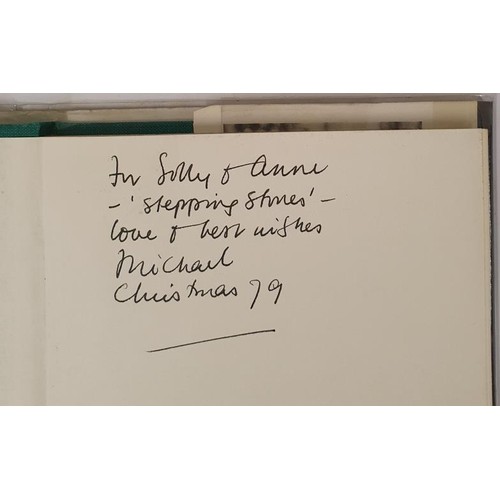 For Solly & Anne
- 'Stepping Stones' -
love & best wishes
Michael
Christmas 79